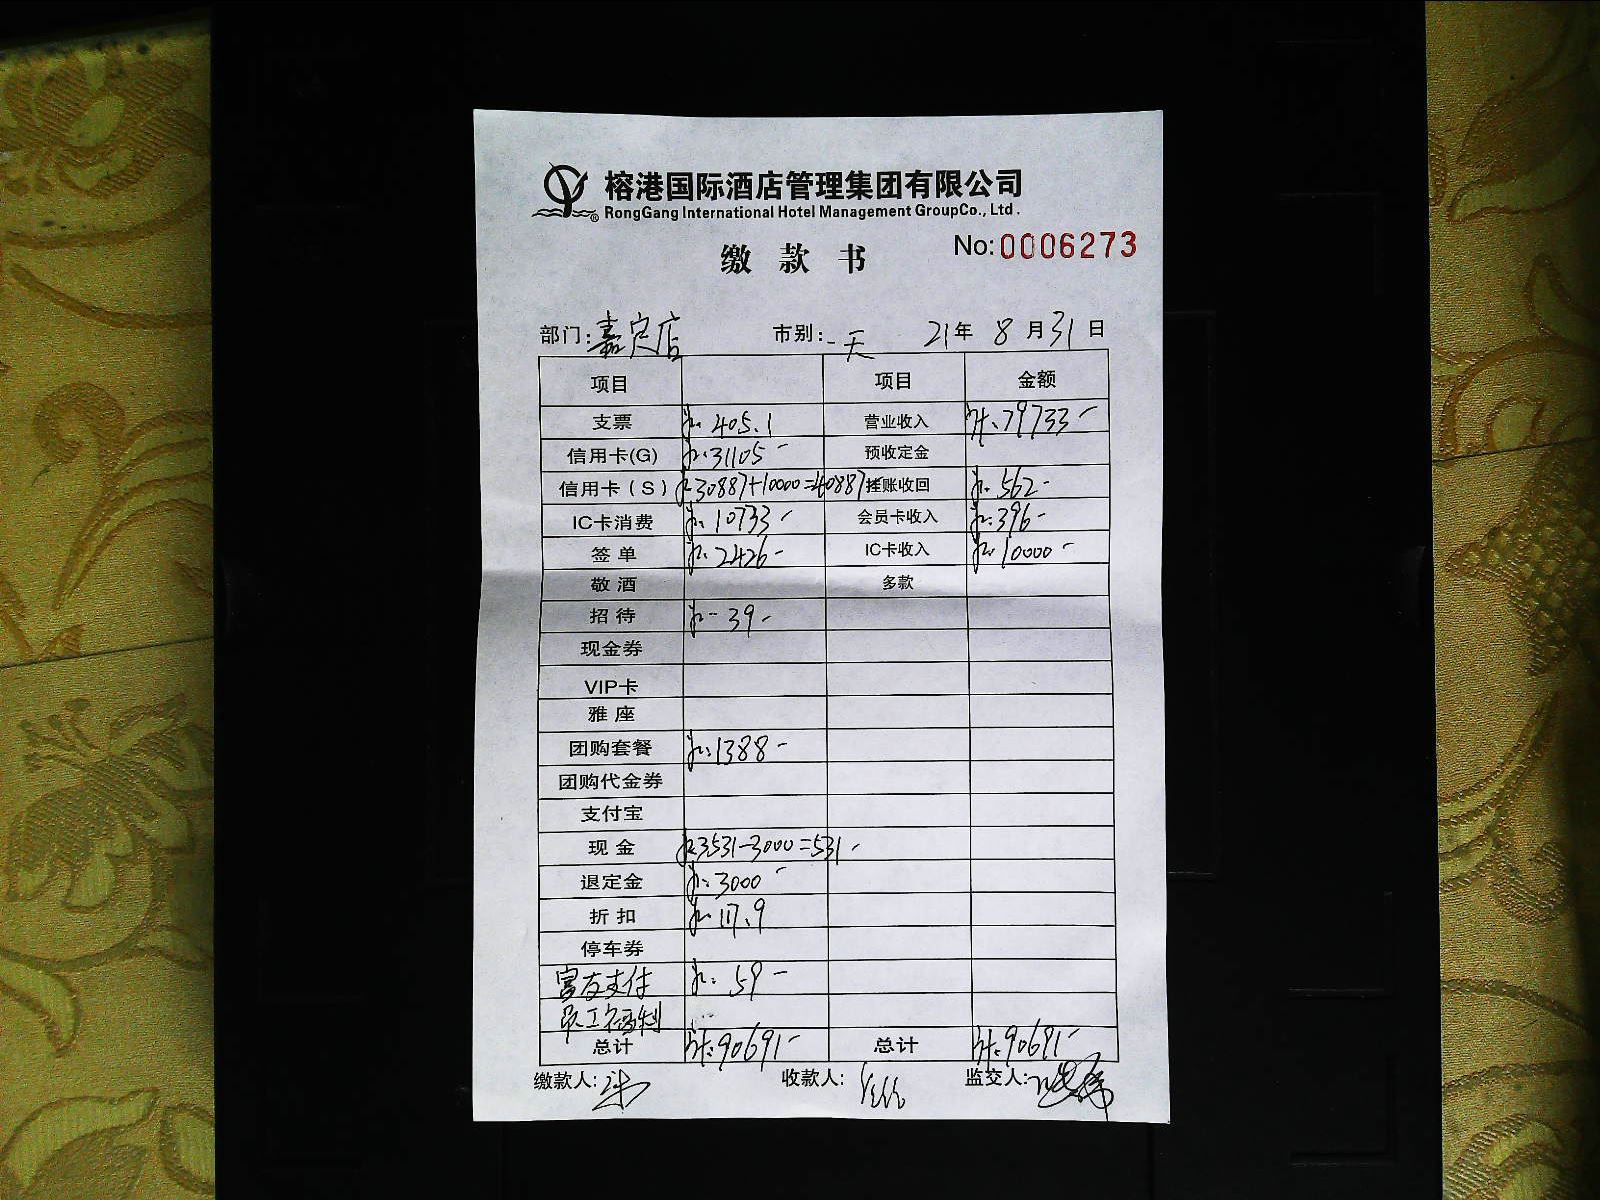 榕港国际酒店管理集团有限公司
RongGang International Hotel Management GroupCo., Ltd.
缴款书 No:0006273
部门: 嘉定店 市别: 一天 21年 8月31日
项目 项目 金额
支票 405.1 营业收入 计:79733-
信用卡(G) 31105- 预收定金
信用卡(S) 30887+10000=40887- 挂账收回 562-
IC卡消费 10733- 会员卡收入 396-
签单 2426- IC卡收入 10000-
敬酒 多款
招待 39-
现金券
VIP卡
雅座
团购套餐 1388-
团购代金券
支付宝
现金 3531-3000=531-
退定金 3000-
折扣 117.9
停车券
富友支付 59-
员工福利
总计 计:90691- 总计 计:90691-
缴款人: 收款人: 监交人: